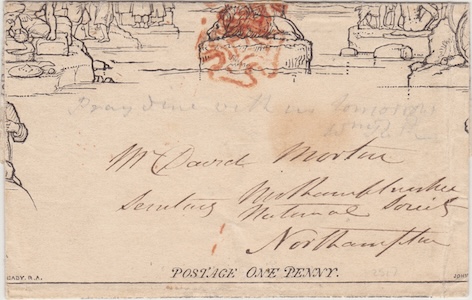 Pray dine with us tomorrow
Mr David Morton
Secretary Northamptonshire
National Society
Northampton
POSTAGE ONE PENNY.